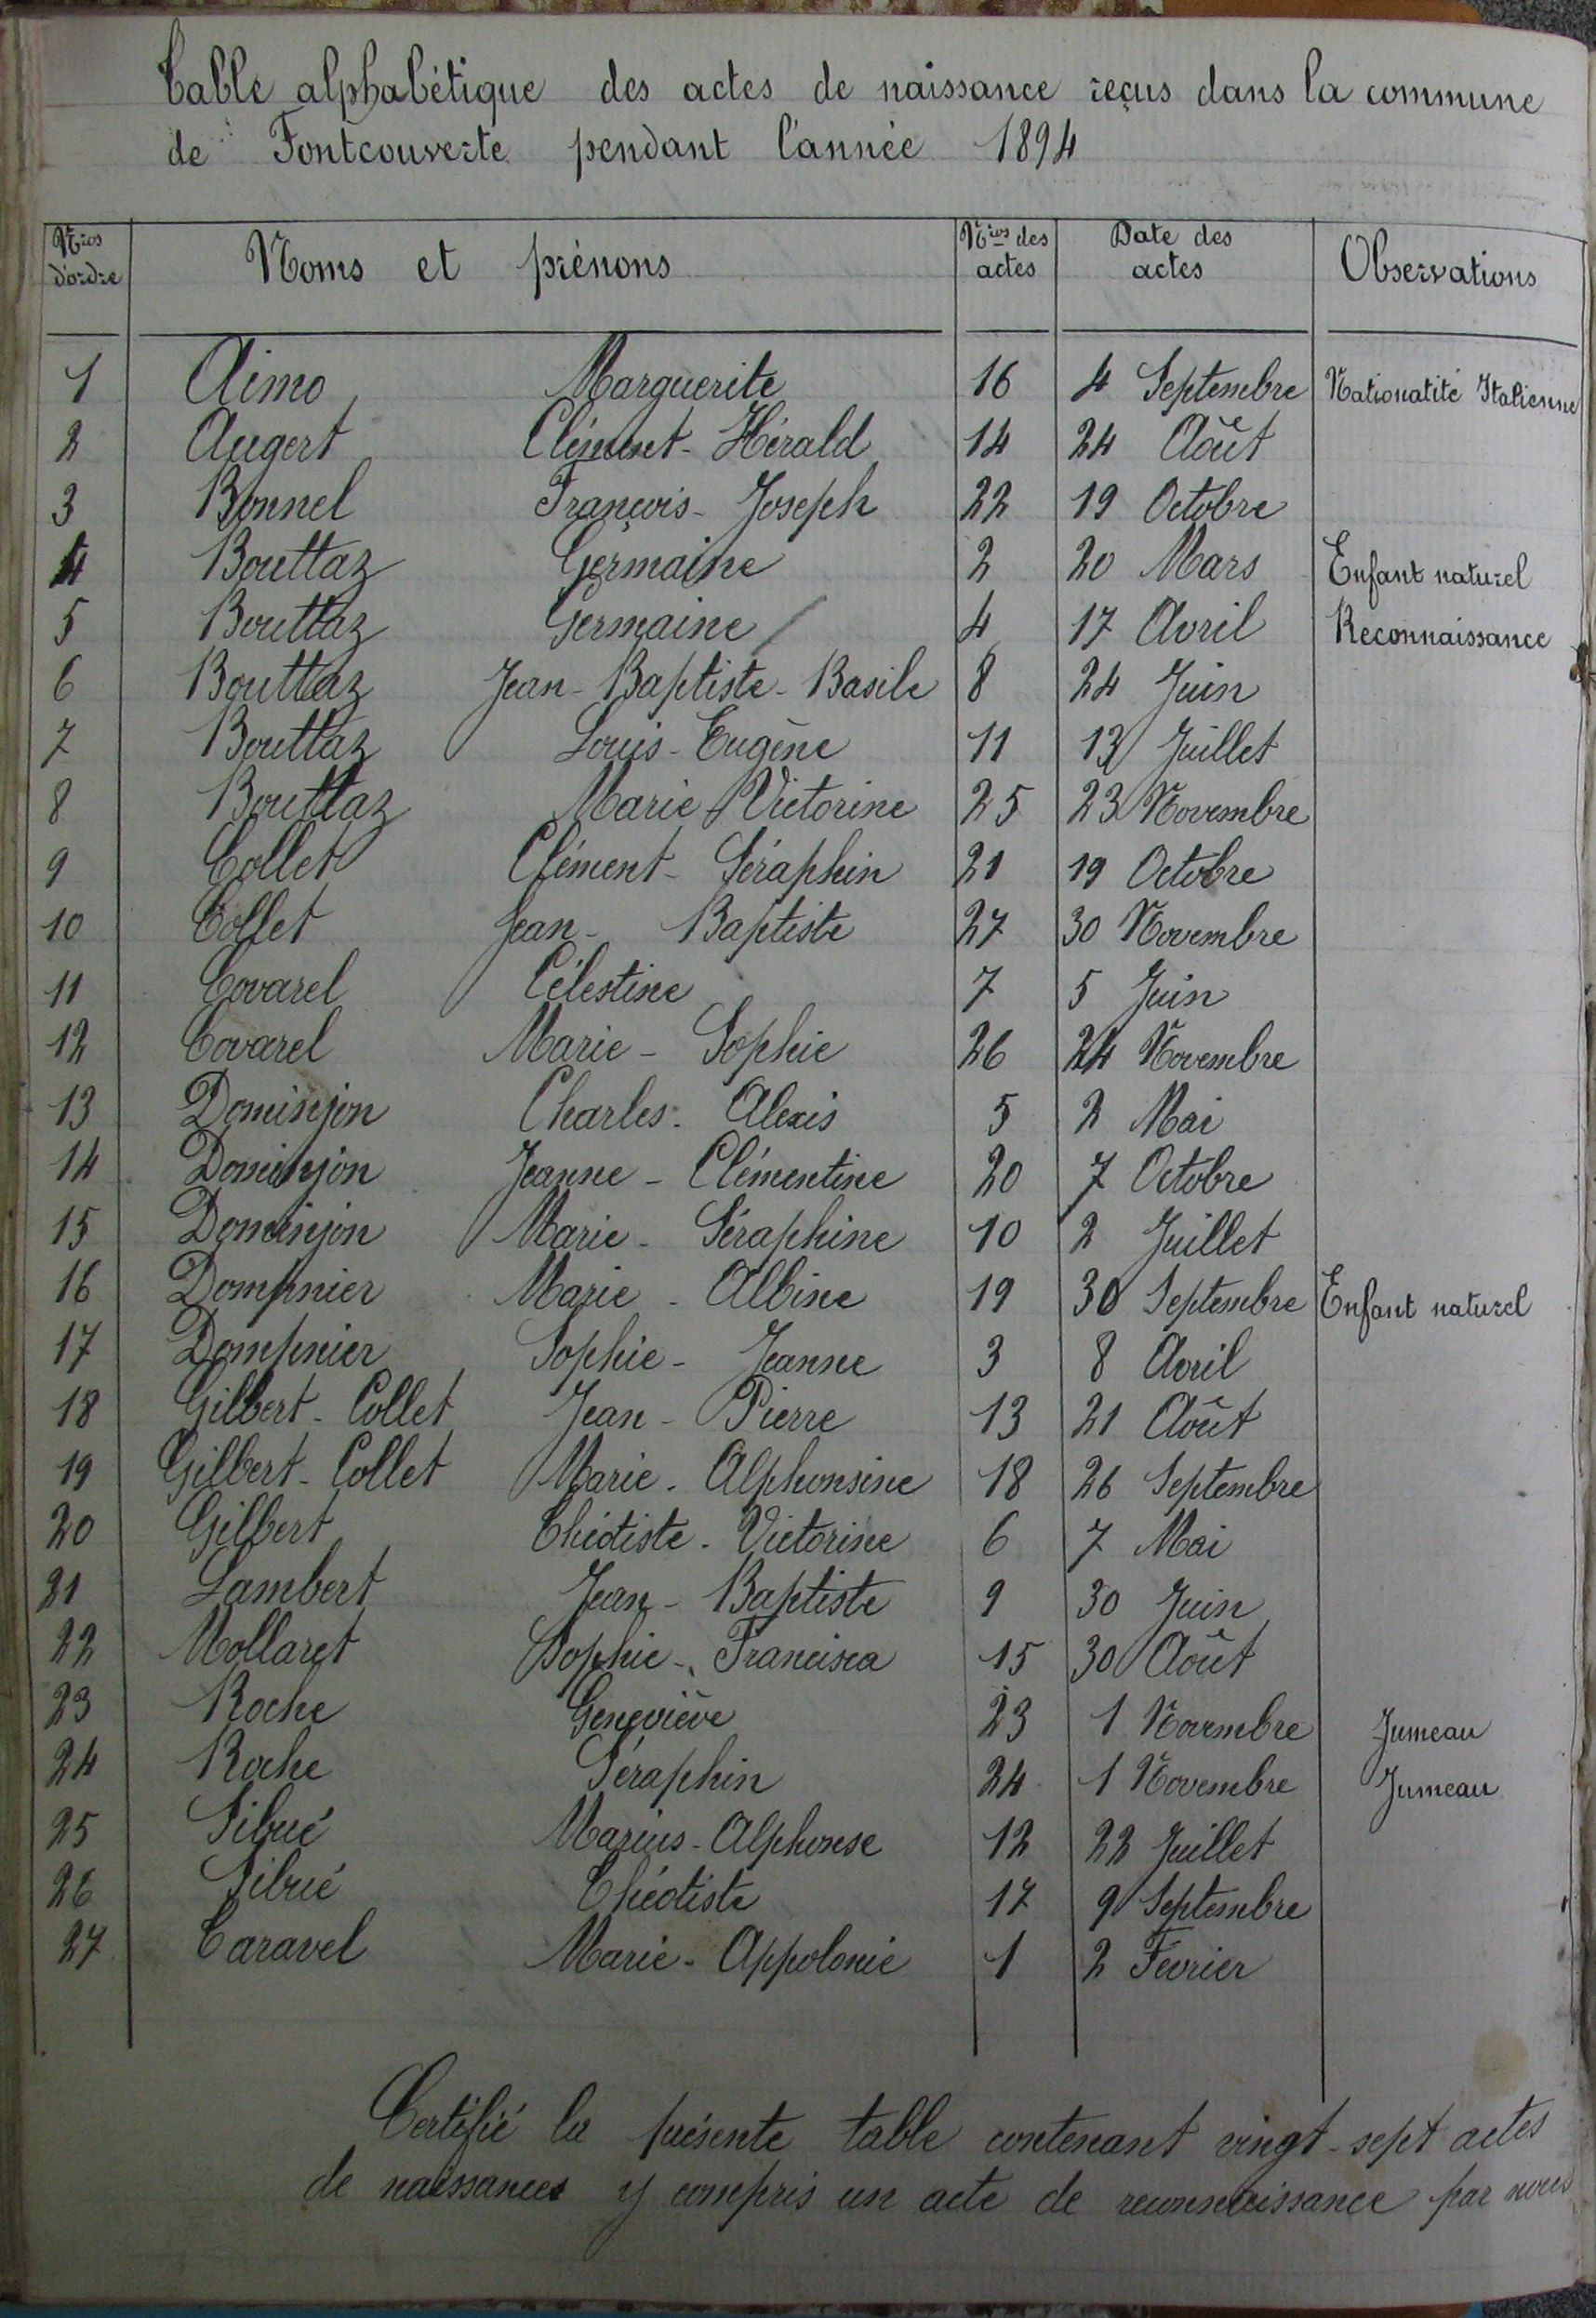 Table alphabétique des actes de naissance reçus dans la commune
de Fontcouverte pendant l'année 1894
Nros d'ordre Noms et prénons Nros des actes Date des actes Observations
1 Aimo Marguerite 16 4 Septembre Nationatité Italienne
2 Augert Clément-Hérald 14 24 Août
3 Bonnel François-Joseph 22 19 Octobre
4 Bouttaz Germaine 2 20 Mars Enfant naturel
5 Bouttaz Germaine 4 17 Avril Reconnaissance
6 Bouttaz Jean-Baptiste-Basile 8 24 Juin
7 Bouttaz Louis-Eugène 11 13 Juillet
8 Bouttaz Marie-Victorine 25 23 Novembre
9 Collet Clément-Séraphin 21 19 Octobre
10 Collet Jean-Baptiste 27 30 Novembre
11 Covarel Célestine 7 5 Juin
12 Covarel Marie-Sophie 26 24 Novembre
13 Dominjon Charles-Alexis 5 2 Mai
14 Dominjon Jeanne-Clémentine 20 7 Octobre
15 Dominjon Marie-Séraphine 10 2 Juillet
16 Dompnier Marie-Albine 19 30 Septembre Enfant naturel
17 Dompnier Sophie-Jeanne 3 8 Avril
18 Gilbert-Collet Jean-Pierre 13 21 Août
19 Gilbert-Collet Marie-Alphonsine 18 26 Septembre
20 Gilbert Théotiste-Victorine 6 7 Mai
21 Lambert Jean-Baptiste 9 30 Juin
22 Mollaret Sophie-Francisca 15 30 Août
23 Roche Geneviève 23 1 Novembre Jumeau
24 Roche Séraphin 24 1 Novembre Jumeau
25 Sibué Marius-Alphonse 12 22 Juillet
26 Sibué Théotiste 17 9 Septembre
27 Taravel Marie-Appolonie 1 2 Février
Certifié la présente table contenant vingt-sept actes
de naissances y compris un acte de reconnaissance par nous